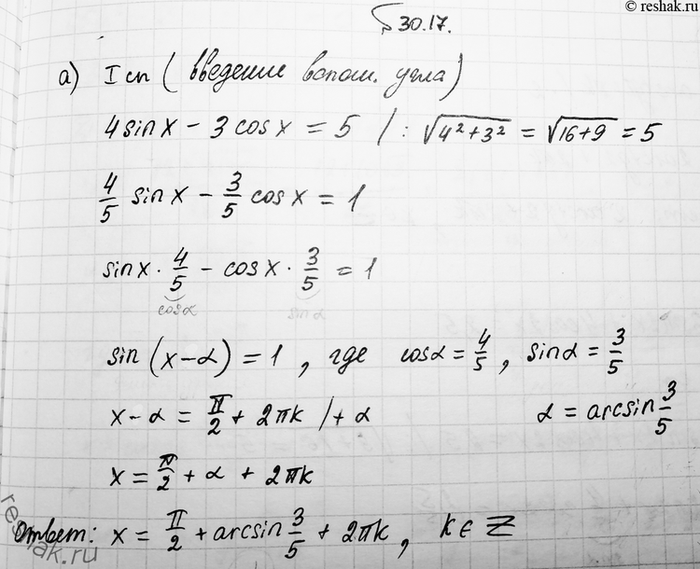 © reshak.ru
§30.17.
а) I сп (введение вспом. угла)
4sinx − 3cosx = 5 / : √(4²+3²) = √(16+9) = 5
4/5 sinx − 3/5 cosx = 1
sinx · 4/5 − cosx · 3/5 = 1
cosα sinα
sin(x−α) = 1, где cosα = 4/5, sinα = 3/5
x−α = π/2 + 2πk /+α α = arcsin 3/5
x = π/2 + α + 2πk
Ответ: x = π/2 + arcsin 3/5 + 2πk, k∈Z
reshak.ru